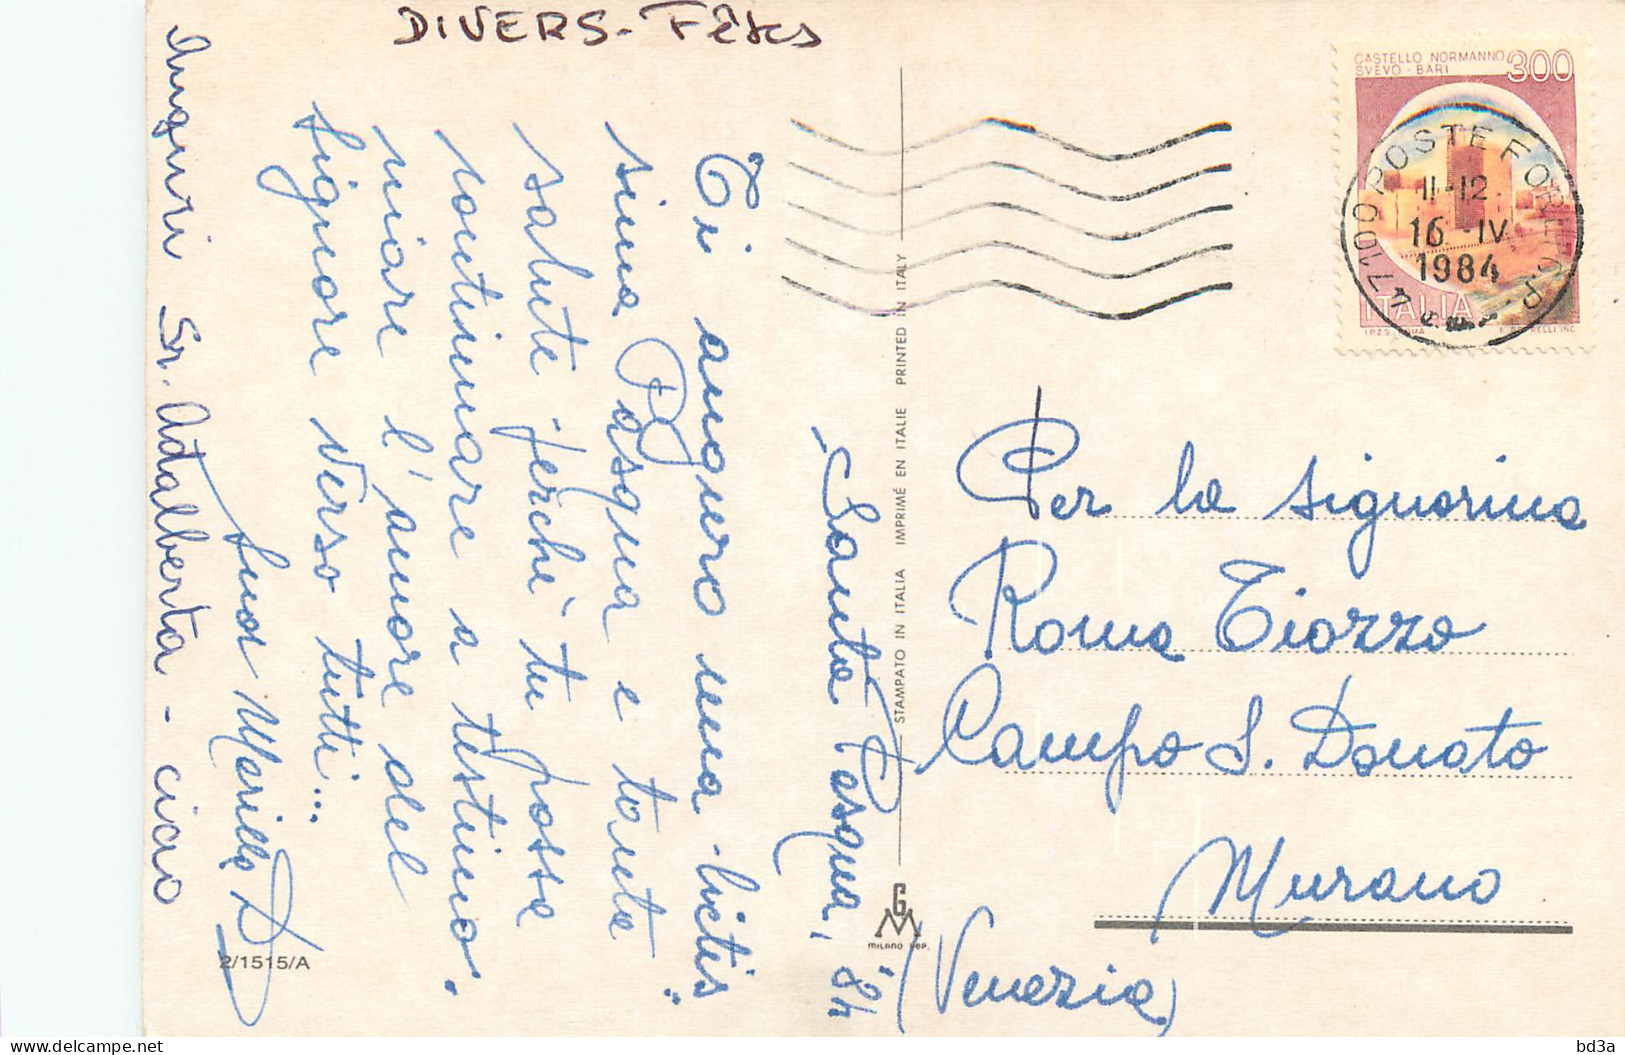 DIVERS - Fêtes
CASTELLO NORMANNO
SVEVO - BARI
300
47100 POSTE FORLI A.P.
11-12
16 -IV
1984
ITALIA
I.P.Z.S. ROMA
Santa Pasqua, '84
Ti auguro una lietis"
sima Pasqua e tanta
salute perchè tu possa
continuare a testimo"
niare l'amore del
Signore verso tutti...
Suor Marilla D
Auguri Sr. Adalberta - ciao
STAMPATO IN ITALIA IMPRIMÉ EN ITALIE PRINTED IN ITALY
GM
MILANO DEP.
2/1515/A
Per la signorina
Roma Tiozzo
Campo S. Donato
Murano
(Venezia)
bd3a